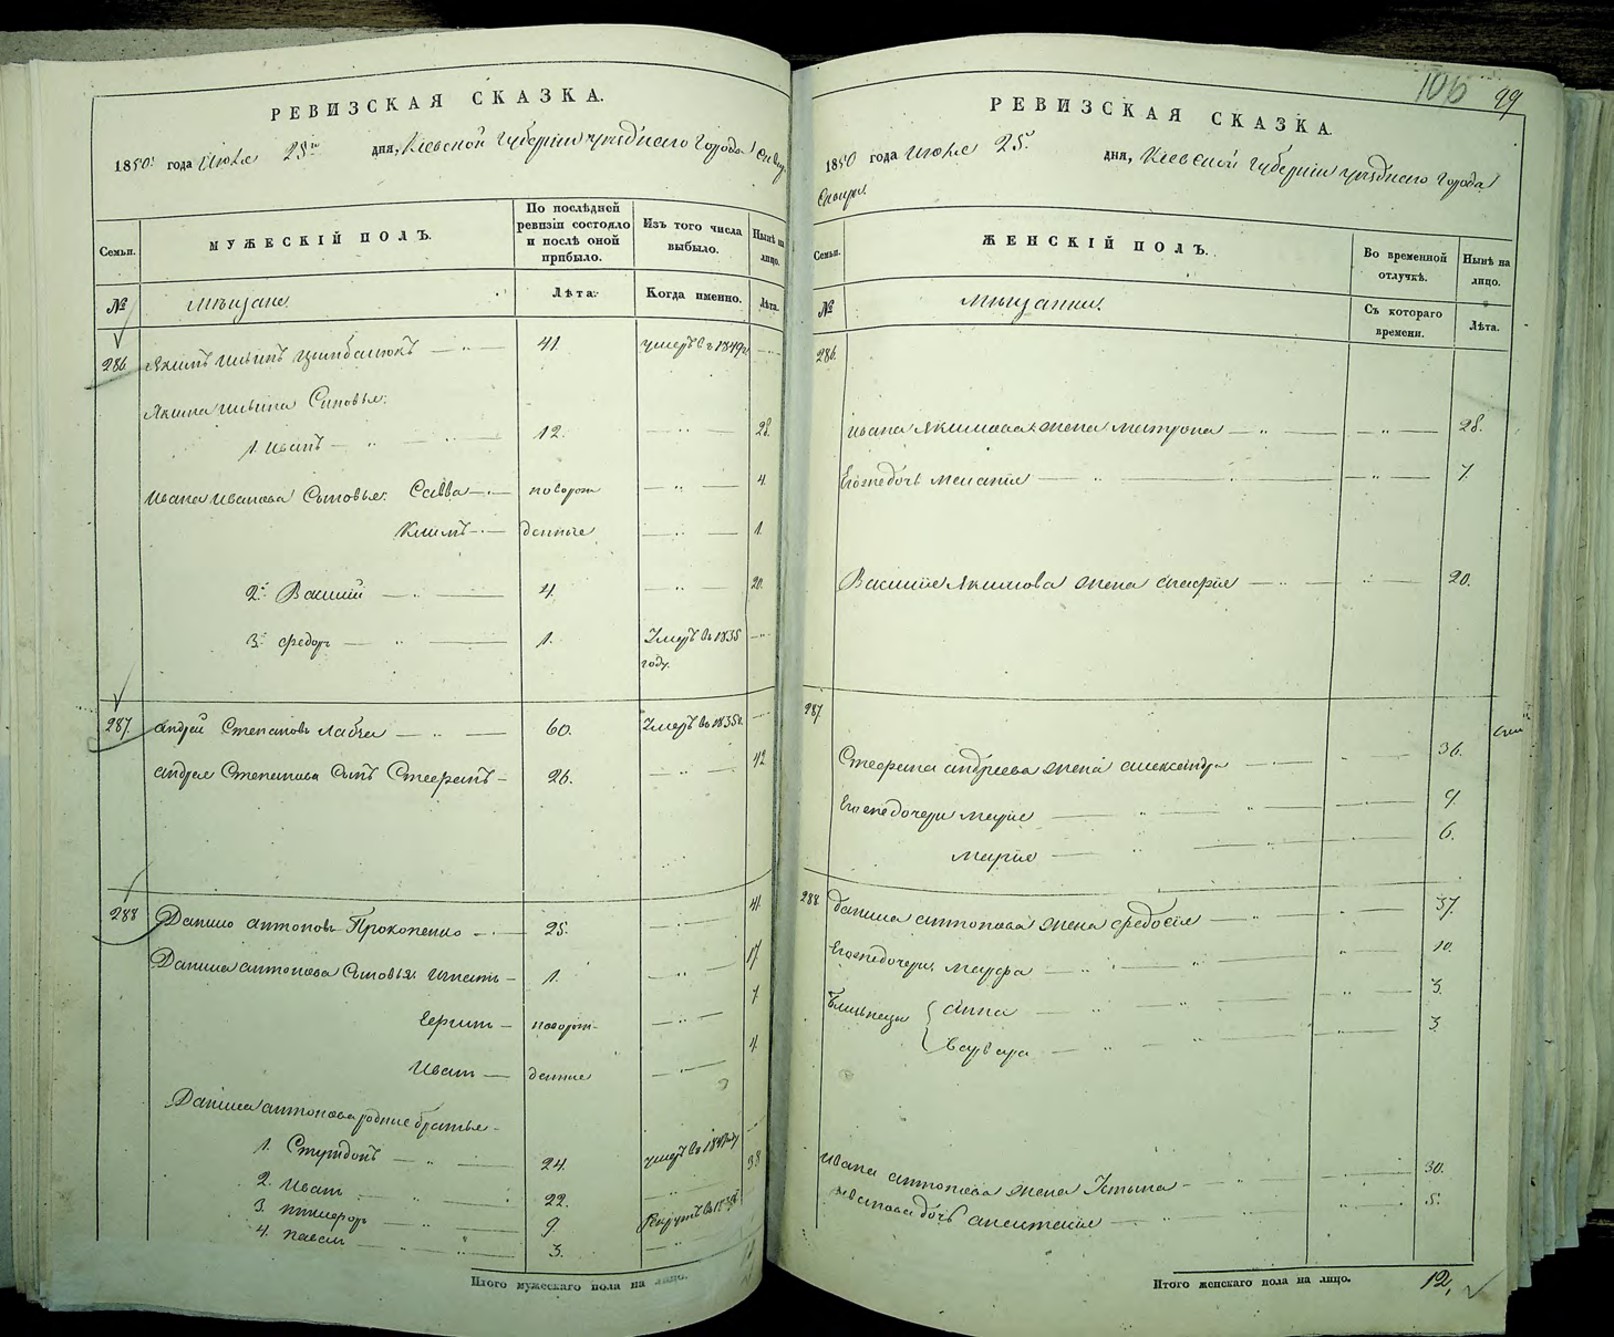 РЕВИЗСКАЯ СКАЗКА.
1850 года Июля 25го дня, Киевской Губернии уѣзднаго города
Семьи.
МУЖЕСКІЙ ПОЛЪ.
По послѣдней ревизіи состояло и послѣ оной прибыло.
Изъ того числа выбыло.
Нынѣ на лицо.
№
Мещане.
Лѣта.
Когда именно.
Лѣта.
286. Якимъ Ильинъ Цимбалюкъ 41. умеръ въ 1849г.
Якима Ильина Сыновья:
1. Иванъ 12. 28.
Ивана Иванова Сыновья: Савва новорож 4.
Климъ денные 1.
2. Василий 4. 20.
3. Федоръ 1. Умеръ въ 1835
году.
287. Андрей Степановъ 60. Умеръ въ 1835г.
Андрея Степанова Сынъ Стефанъ 26. 42
288 Данило Антоновъ Прокопенко 25. 41.
Данила Антонова Сыновья: Игнатъ 1. 17
новорож- 7
Иванъ денные 4.
Данила Антонова родные братья
1. 24. умеръ въ
2. Иванъ 22. 38
3. 9. Рекрутъ въ
4. 3.
Итого мужескаго пола на лицо.
106 99
РЕВИЗСКАЯ СКАЗКА.
1850 года Июля 25. дня, Киевской Губернии уѣзднаго города
Сквиры
Семьи.
ЖЕНСКІЙ ПОЛЪ.
Во временной отлучкѣ.
Нынѣ на лицо.
№
Мещанки.
Съ котораго времени.
Лѣта.
286.
Ивана Якимова жена Матрона 28.
Его же дочь Мелания 7.
Василия Якимова жена 20.
287.
Стефана Андреева жена Александра 36.
Его же дочери Мария 9.
Мария 6.
288. Данила Антонова жена Федосия 37.
Его же дочери: Марфа 10.
Близнецы Анна 3.
Варвара 3.
Ивана Антонова жена Устина 30.
Иванова дочь Анастасия 5.
Итого женскаго пола на лицо. 12,